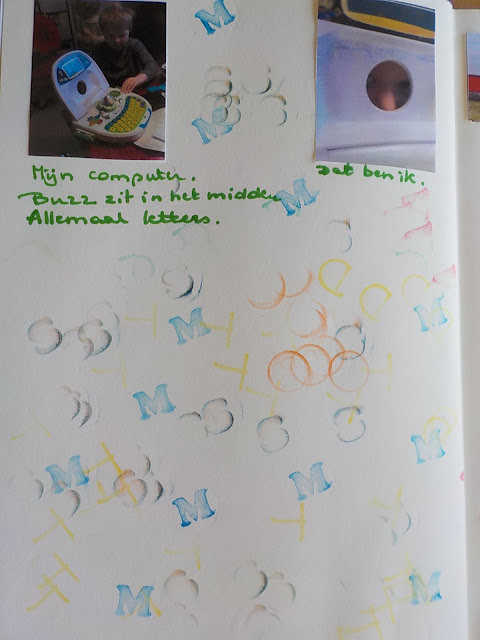 Mijn computer.
Buzz zit in het midden
Allemaal letters.
Dat ben ik.
M
M
M
M
M
T
T
S
S
M
S
S
S
M
M
M
M
T
M
M